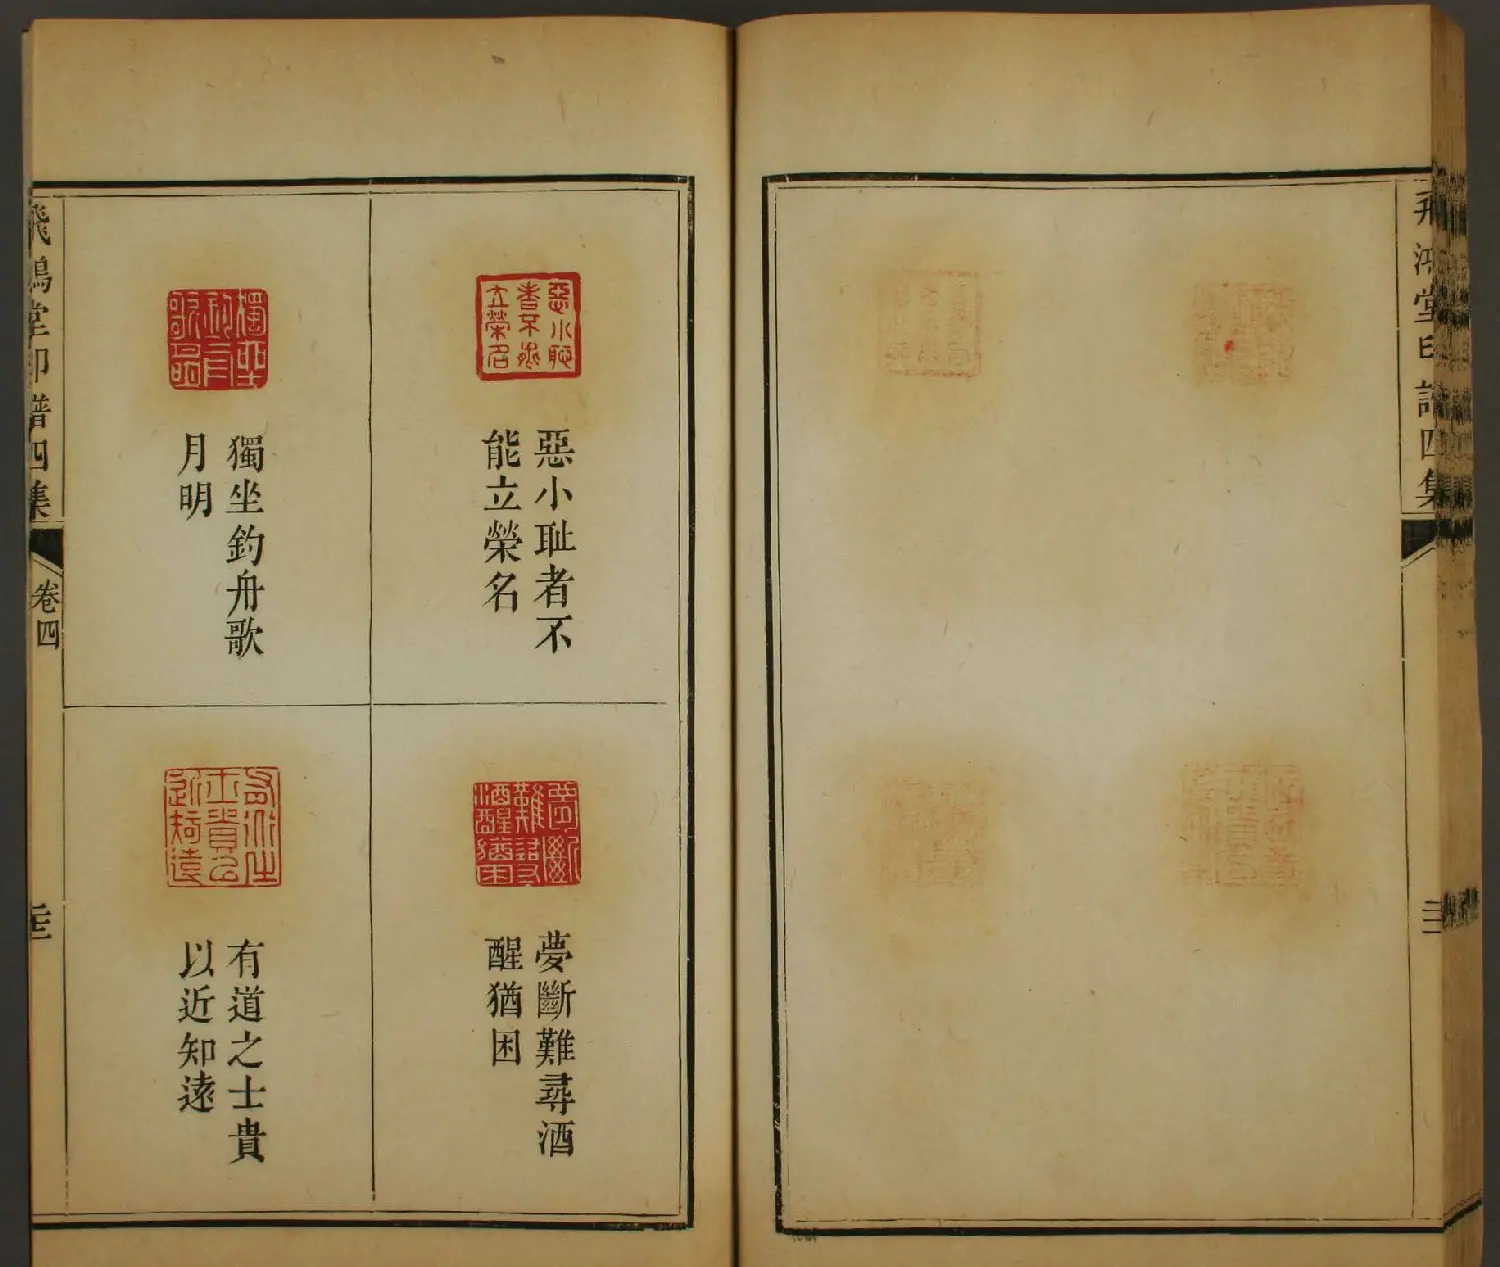 飛鴻堂印譜四集
惡小耻者不
能立榮名
獨坐釣舟歌
月明
夢斷難尋酒
醒猶困
有道之士貴
以近知遠
飛鴻堂印譜四集
卷四